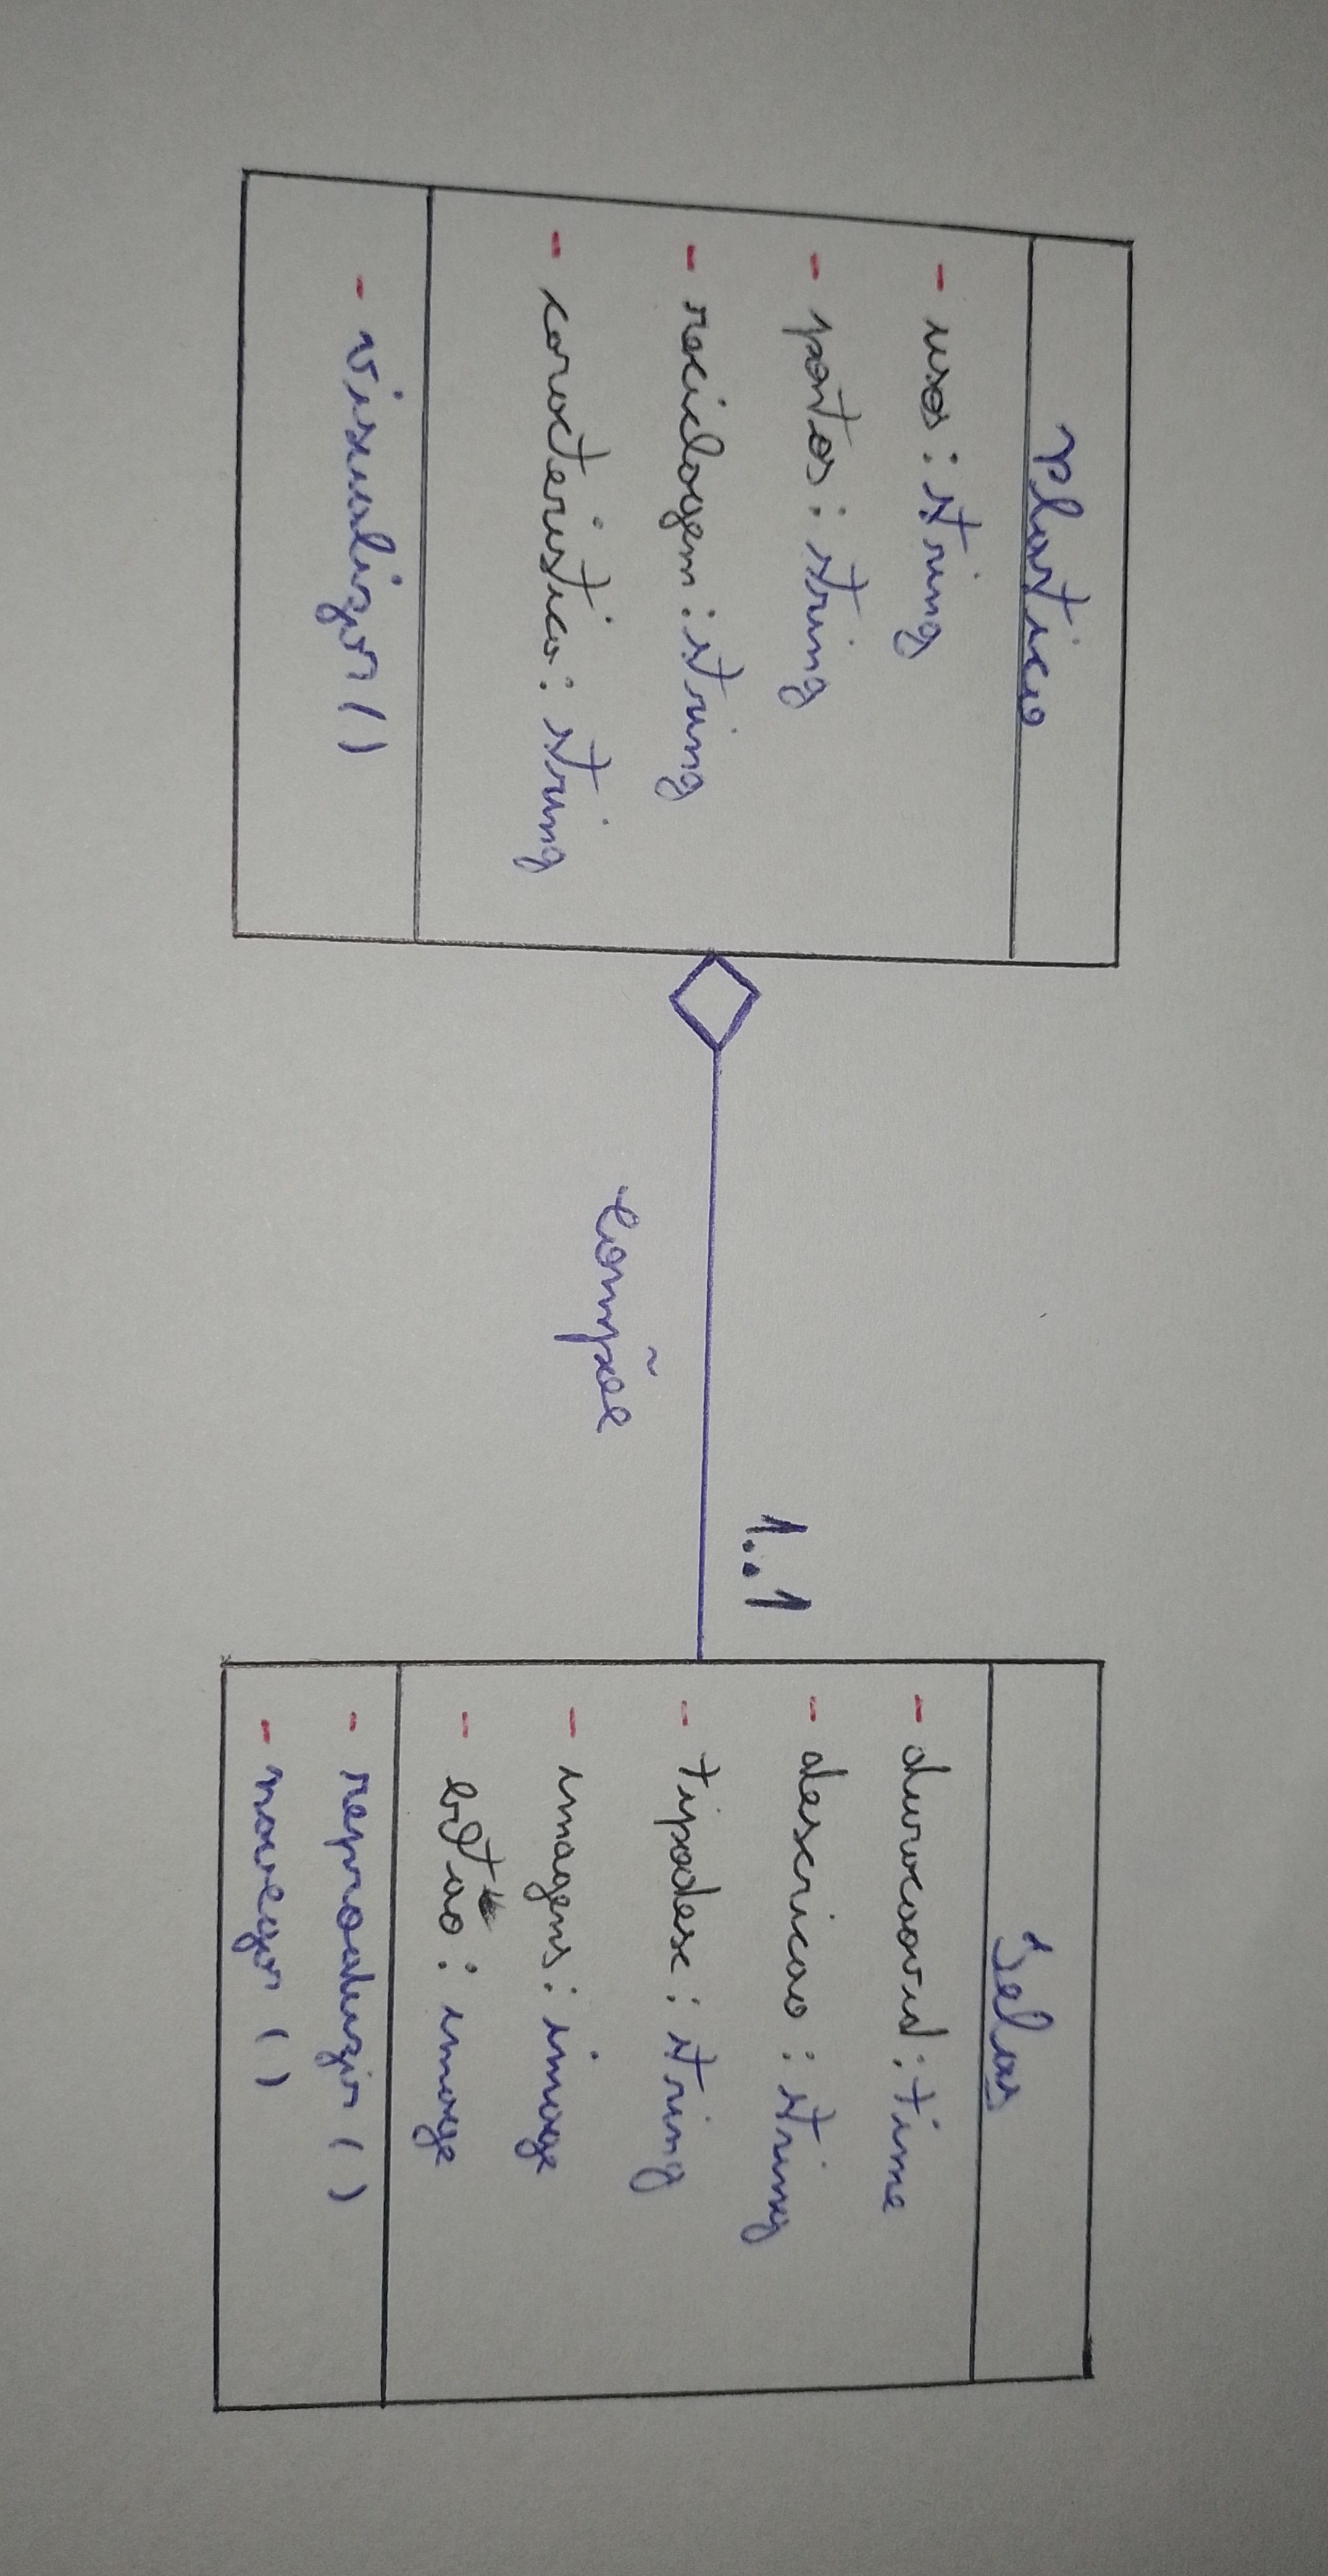 Plastico
- usos: string
- pontos: string
- reciclagem: string
- caracteristica: string
- visualizar()
1..1
compõe
Telas
- duracaovid: time
- descricao: string
- tipodesc: string
- imagens: image
- botão: image
- reproduzir ( )
- navegar ( )